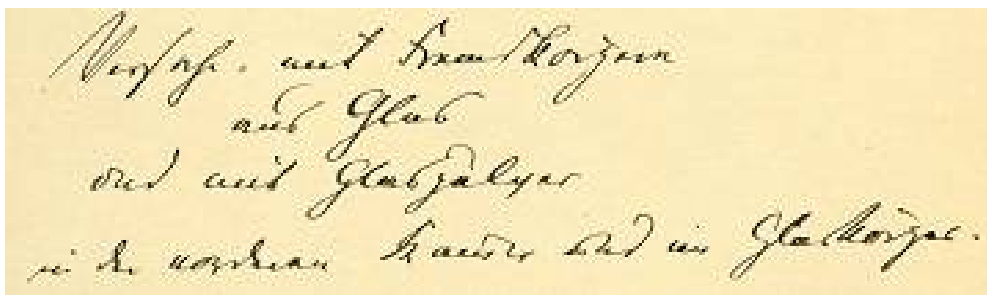 Versuche mit Fremdkörpern
aus Glas
und mit Glaspulver
in der vorderen Kammer und im Glaskörper.